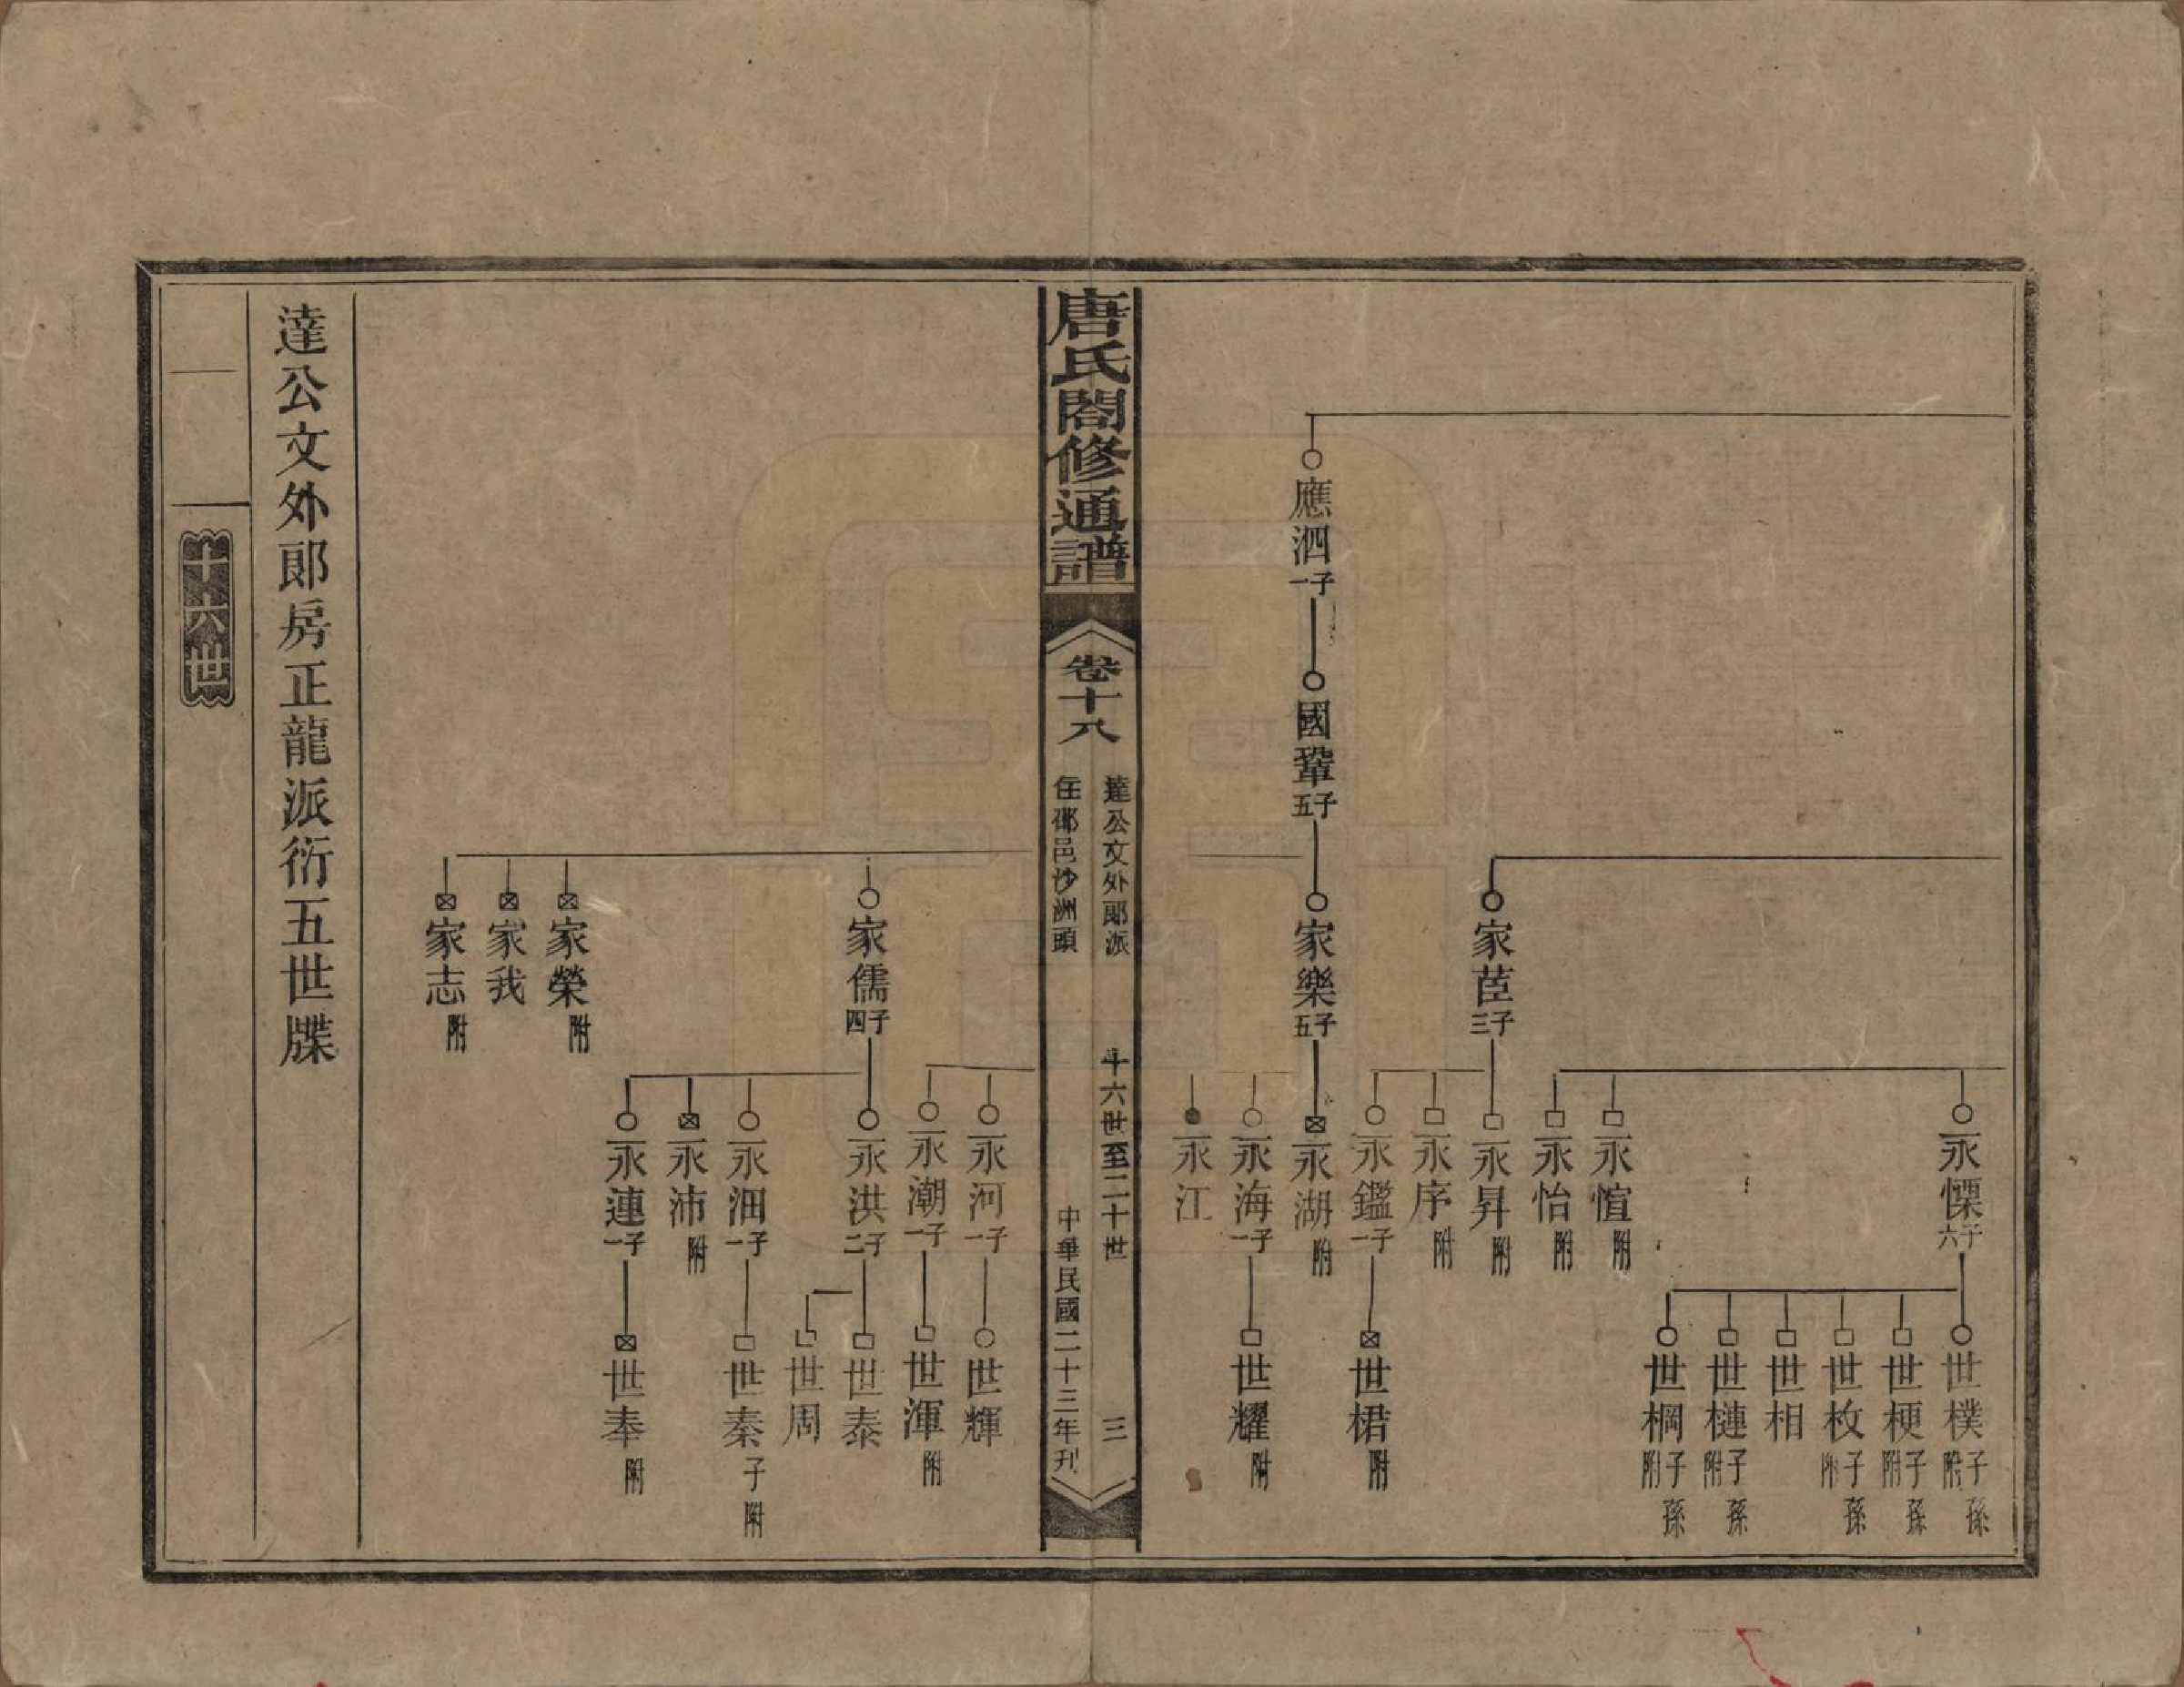 永慄六子
世樸子孫附
世梗子孫附
世枚子孫附
世相
世槤子孫附
世棡子孫附
永愃附
永怡附
家茞三子
永昇附
永序附
永鑑一子
世桾附
應泗一子
國鞏五子
家樂五子
永湖附
永海一子
世耀附
永江
唐氏閤修通譜
卷十八
達公文外郎派
十六世至二十世
三
住邵邑沙洲頭
中華民國二十三年刋
永河一子
世輝
永潮一子
世渾附
家儒四子
永洪二子
世泰
世周
永沺一子
世秦子附
永沛附
永連一子
世奉附
家榮附
家我
家志附
達公文外郎房正龍派衍五世牒
十六世